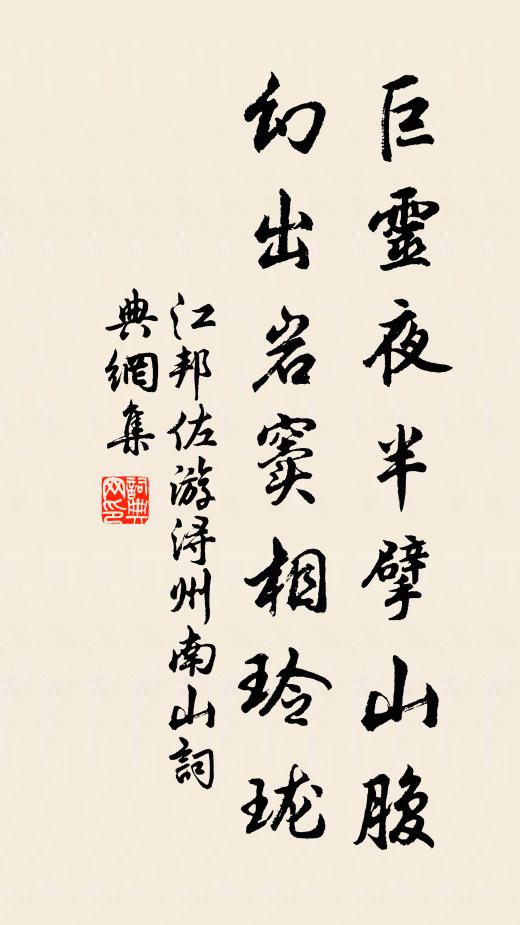 巨靈夜半擘山腹
幻出岩竇相玲珑
江邦佐游浔州南山詞
典網集
詞典
网印